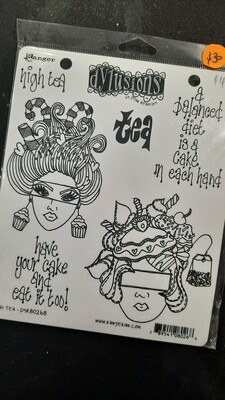 Ranger
dylusions
$30
high tea
tea
a
balanced
diet
is a
cake
in each hand
have
your cake
and
eat it too!
TEA - DYR80268
WWW.RANGERINK.COM